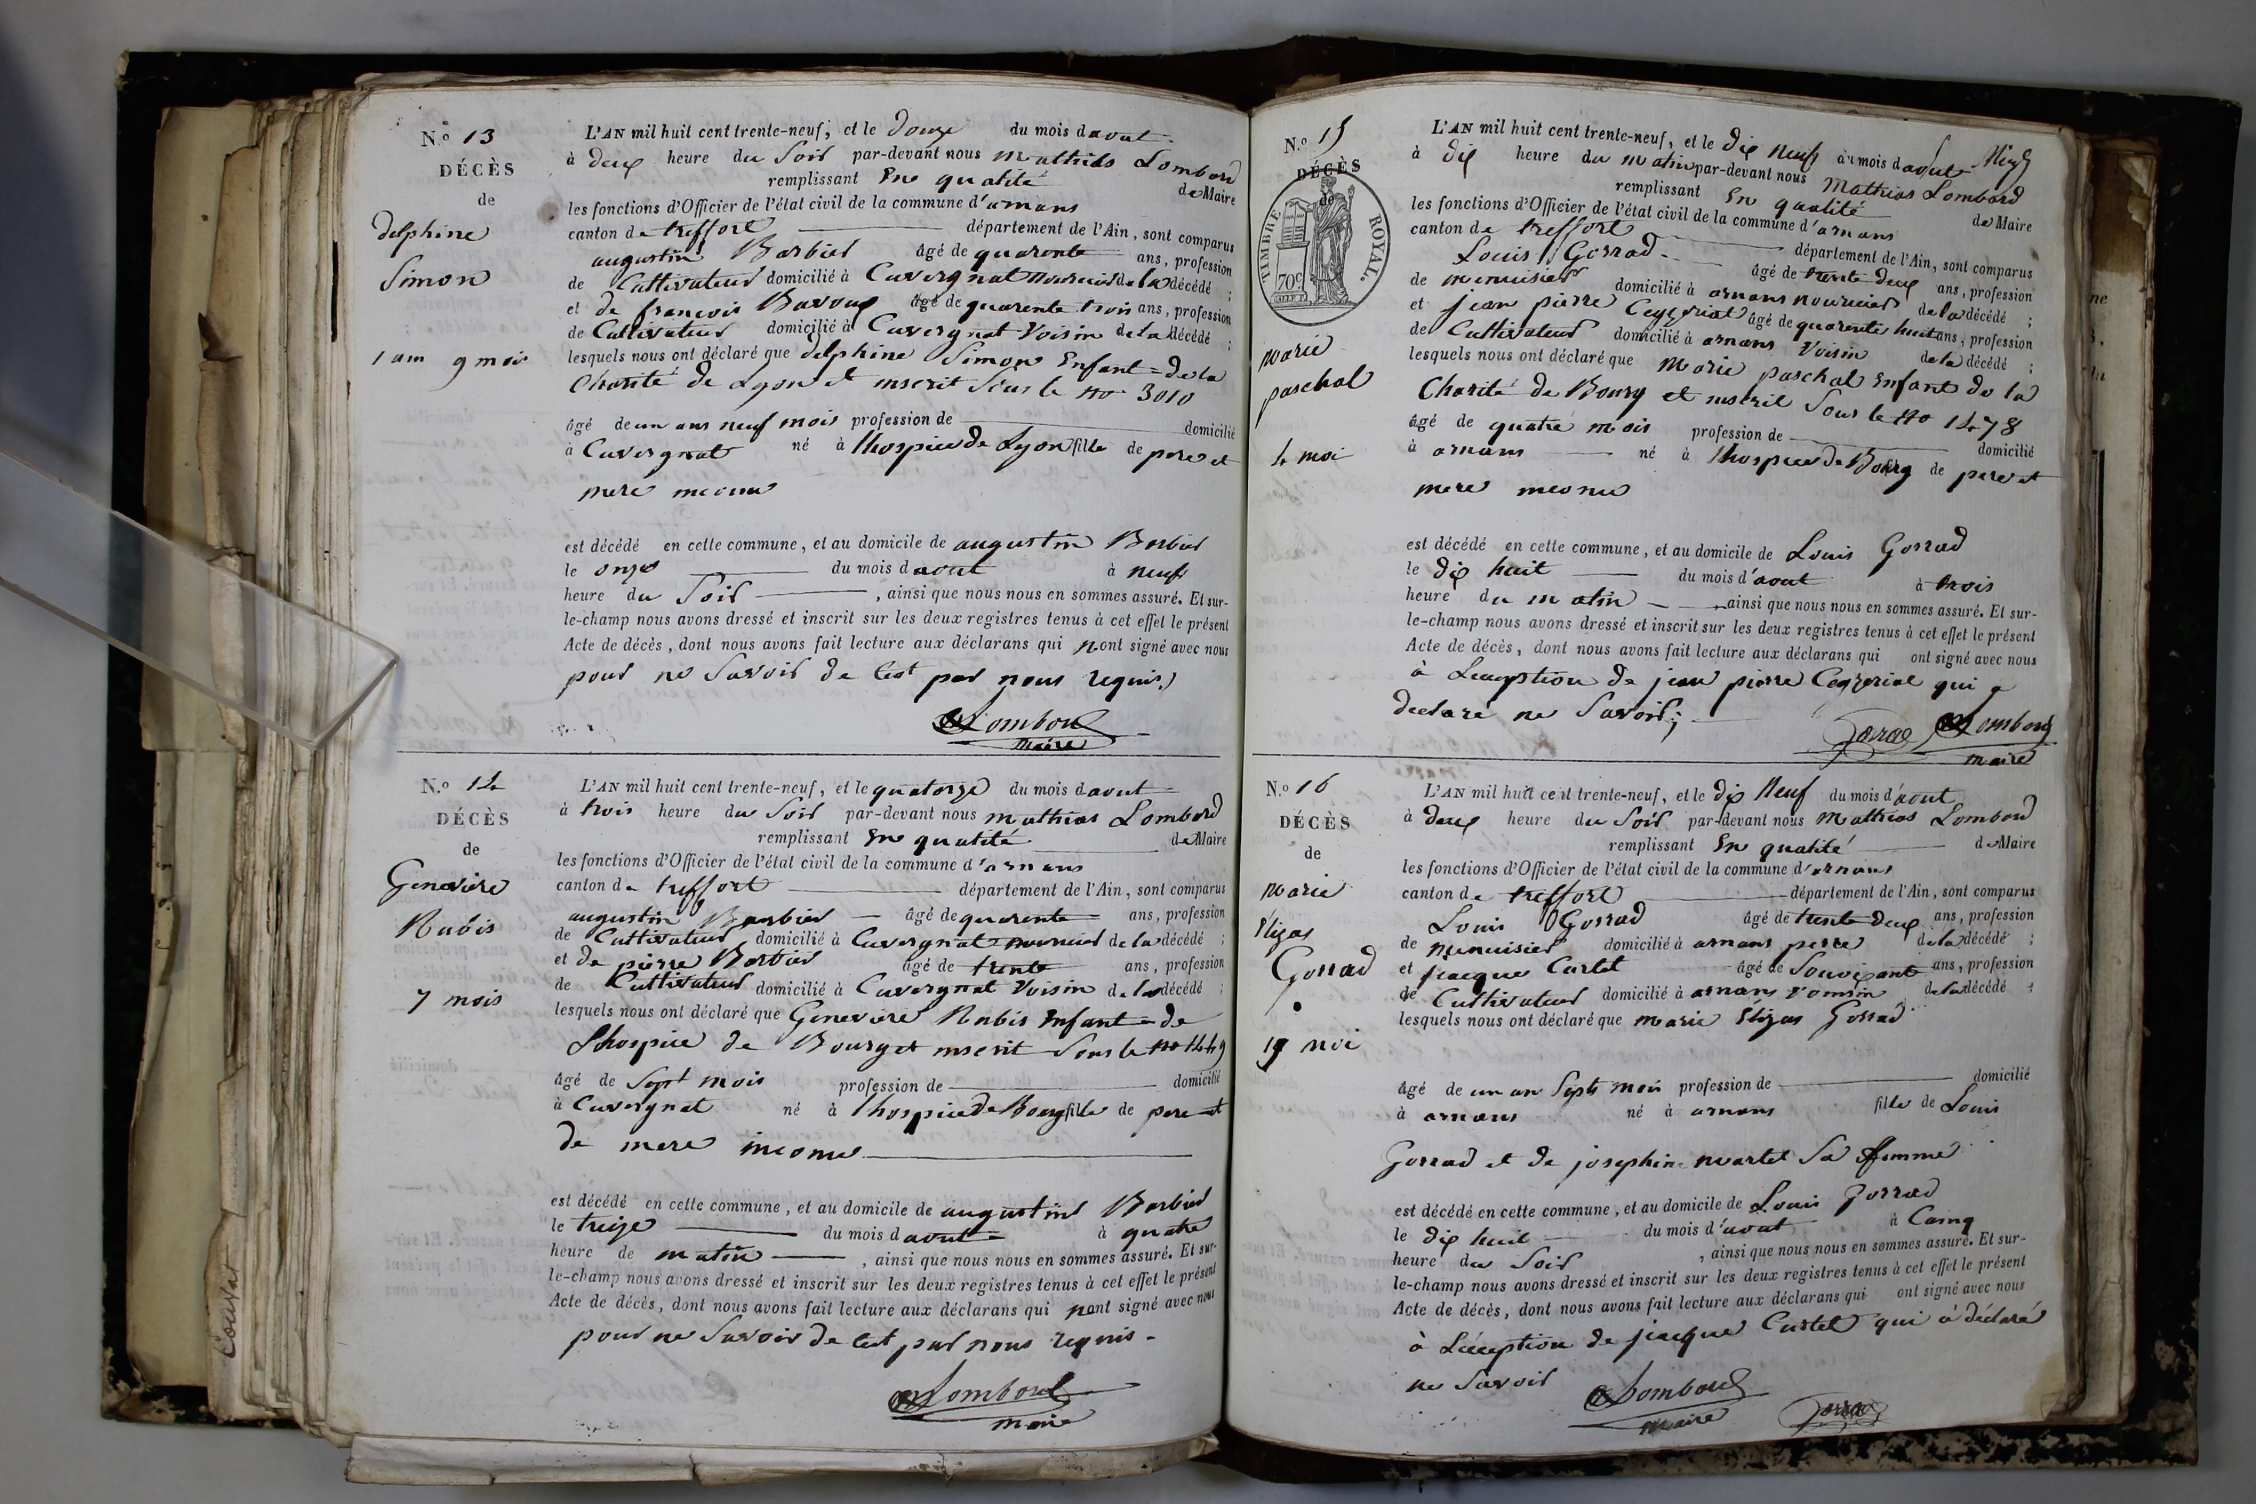 N.o 13
DÉCÈS
de
delphine
Simon
1 am 9 mois
L'AN mil huit cent trente-neuf, et le douze du mois daout
à deux heure du Soir par-devant nous mathias Lombard
remplissant En qualité de Maire
les fonctions d'Officier de l'état civil de la commune d'arnans
canton de treffort département de l'Ain, sont comparus
augustin Barbier âgé de quarente ans, profession
de Cultivateur domicilié à Cuvergnat nourricier de la décédé ;
et de francois Bavoux âgé de quarente trois ans, profession
de Cultivateur domicilié à Cuvergnat Voisin de la décédé ;
lesquels nous ont déclaré que delphine Simon Enfant de la
Charité de Lyon et inscrit Sous le no 3010
âgé de un ans neuf mois profession de domicilié
à Cuvergnat né à lhospice de Lyon fille de pere et
mere inconu
est décédé en cette commune, et au domicile de augustin Barbier
le onze du mois daout à neuf
heure du Soir , ainsi que nous nous en sommes assuré. Et sur-
le-champ nous avons dressé et inscrit sur les deux registres tenus à cet effet le présent
Acte de décès, dont nous avons fait lecture aux déclarans qui nont signé avec nous
pour ne Savoir de Cest par nous requis.)
Lombard
maire
N.o 14
DÉCÈS
de
Genevière
Rubis
7 mois
L'AN mil huit cent trente-neuf, et le quatorze du mois daout
à trois heure du Soir par-devant nous mathias Lombard
remplissant En qualité de Maire
les fonctions d'Officier de l'état civil de la commune d'arnans
canton de treffort département de l'Ain, sont comparus
augustin Barbier âgé de quarente ans, profession
de Cultivateur domicilié à Cuvergnat nourricier de la décédé ;
et de pierre Barbier âgé de trente ans, profession
de Cultivateur domicilié à Cuvergnat Voisin de la décédé ;
lesquels nous ont déclaré que Genevière Rubis Enfant de
Lhospice de Bourg et inscrit Sous le no 1449
âgé de Sept mois profession de domicilié
à Cuvergnat né à lhospice de Bourg fille de pere et
de mere inconu
est décédé en cette commune, et au domicile de augustin Barbier
le treize du mois daout à quatre
heure de matin , ainsi que nous nous en sommes assuré. Et sur-
le-champ nous avons dressé et inscrit sur les deux registres tenus à cet effet le présent
Acte de décès, dont nous avons fait lecture aux déclarans qui nont signé avec nous
pour ne Savoir de Cest par nous requis.
Lombard
maire
N.o 15
DÉCÈS
de
TIMBRE ROYAL.
70c
marie
paschal
4 moi
L'AN mil huit cent trente-neuf, et le dix neuf du mois daout
à dix heure du matin par-devant nous Mathias Lombard
remplissant En qualité de Maire
les fonctions d'Officier de l'état civil de la commune d'arnans
canton de treffort département de l'Ain, sont comparus
Louis Gorrad âgé de trente deux ans, profession
de menuisier domicilié à arnans nourricier de la décédé ;
et jean pierre âgé de quarente huit ans, profession
de Cultivateur domicilié à arnans Voisin de la décédé ;
lesquels nous ont déclaré que Marie paschal Enfant de la
Charité de Bourg et inscrit Sous le no 1478
âgé de quatre mois profession de domicilié
à arnans né à lhospice de Bourg de pere et
mere inconu
est décédé en cette commune, et au domicile de Louis Gorrad
le dix huit du mois d'aout à trois
heure du matin , ainsi que nous nous en sommes assuré. Et sur-
le-champ nous avons dressé et inscrit sur les deux registres tenus à cet effet le présent
Acte de décès, dont nous avons fait lecture aux déclarans qui ont signé avec nous
à Lexeption de jean pierre qui a
declaré ne Savoir;
Gorrad Lombard
maire
N.o 16
DÉCÈS
de
marie
Elizas
Gorrad
19 moi
L'AN mil huit cent trente-neuf, et le dix Neuf du mois d'aout
à deux heure du Soir par-devant nous Mathias Lombard
remplissant En qualité de Maire
les fonctions d'Officier de l'état civil de la commune d'arnans
canton de treffort département de l'Ain, sont comparus
Louis Gorrad âgé de trente deux ans, profession
de menuisier domicilié à arnans perre de la décédé ;
et jiacque Curtet âgé de Souvixante ans, profession
de Cultivateur domicilié à arnans voinsin de la décédé ;
lesquels nous ont déclaré que marie Elizas Gorrad
âgé de un an Septs mois profession de domicilié
à arnans né à arnans fille de Louis
Gorrad et de josephine martet Sa ffemme
est décédé en cette commune, et au domicile de Louis Gorrad
le dix huit du mois d'aout à Cainq
heure du Soir , ainsi que nous nous en sommes assuré. Et sur-
le-champ nous avons dressé et inscrit sur les deux registres tenus à cet effet le présent
Acte de décès, dont nous avons fait lecture aux déclarans qui ont signé avec nous
à Léxeption de jiacque Curtet qui à déclaré
ne Savoir
Lombard
maire
Gorrad